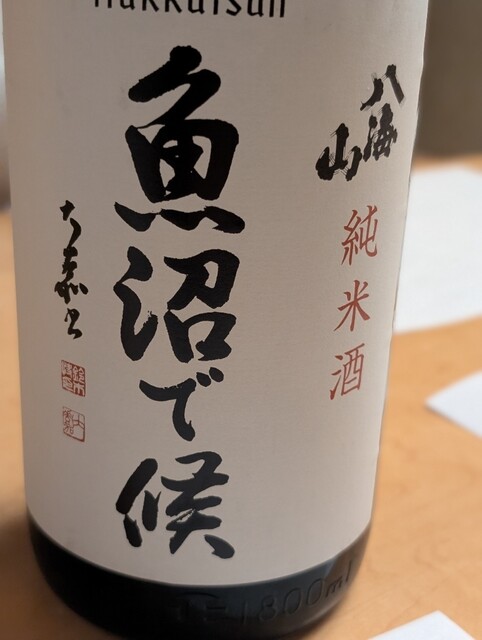 Hakkaisan
八海山
純米酒
魚沼で候
1800ml